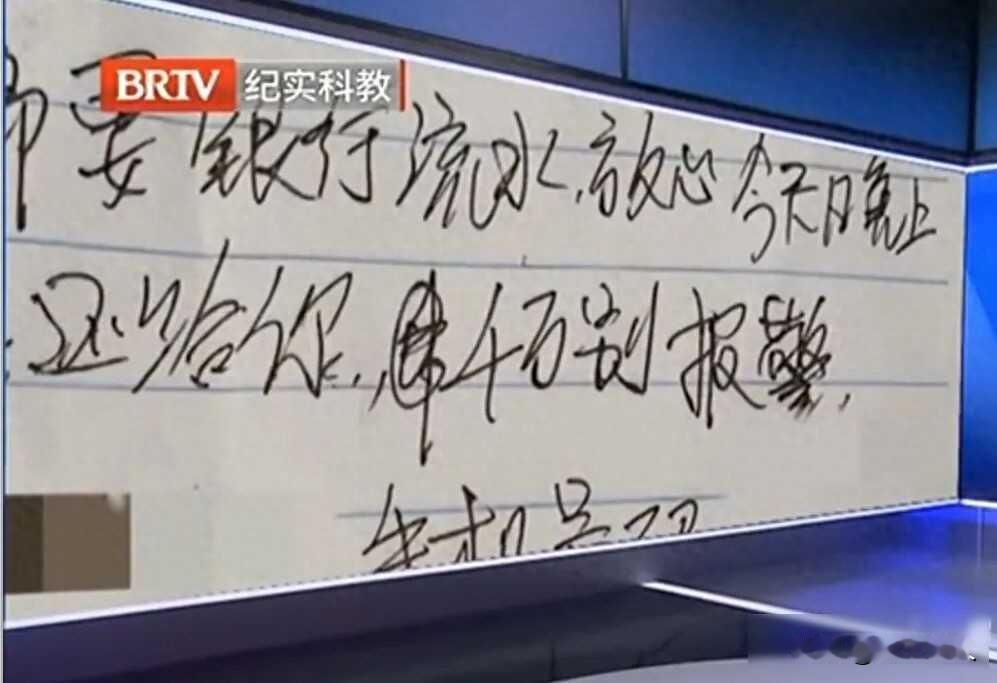 BRTV 纪实科教
要银行流水,放心今天晚上
还给你,千万别报警.